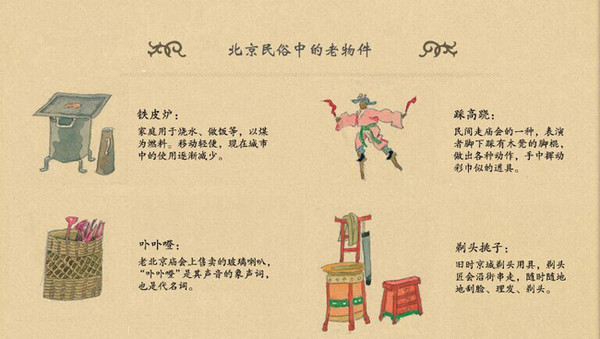 北京民俗中的老物件
铁皮炉：
家庭用于烧水、做饭等，以煤
为燃料。移动轻便，现在城市
中的使用逐渐减少。
踩高跷：
民间走庙会的一种，表演
者脚下踩有木凳的脚棍，
做出各种动作，手中挥动
彩巾似的道具。
卟卟噔：
老北京庙会上售卖的玻璃喇叭，
“卟卟噔”是其声音的象声词，
也是代名词。
剃头挑子：
旧时京城剃头用具，剃头
匠会沿街串走，随时随地
地刮脸、理发、剃头。